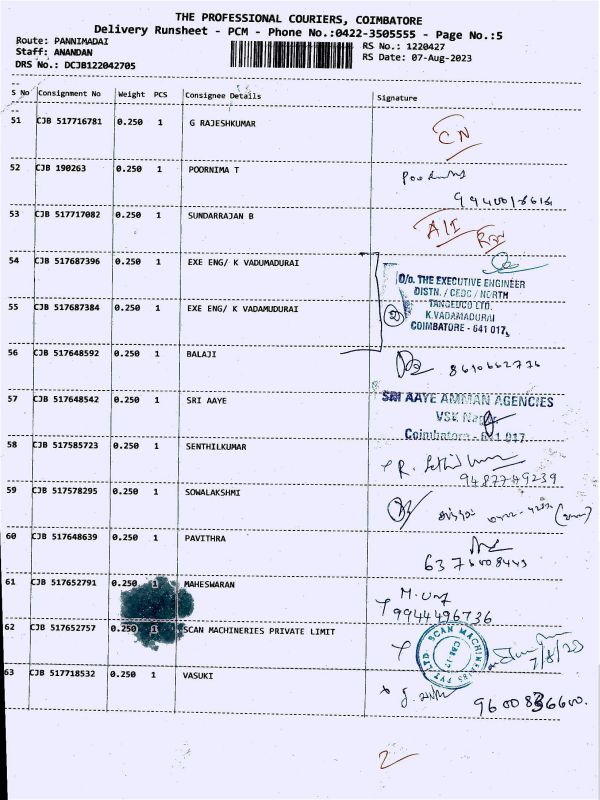 THE PROFESSIONAL COURIERS, COIMBATORE
Delivery Runsheet - PCM - Phone No.:0422-3505555 - Page No.:5
Route: PANNIMADAI
RS No.: 1220427
Staff: ANANDAN
RS Date: 07-Aug-2023
DRS No.: DCJB122042705
S No Consignment No Weight PCS Consignee Details Signature
51 CJB 517716781 0.250 1 G RAJESHKUMAR
CN
52 CJB 190263 0.250 1 POORNIMA T
53 CJB 517717082 0.250 1 SUNDARRAJAN B
A/I
54 CJB 517687396 0.250 1 EXE ENG/ K VADUMADURAI
O/o. THE EXECUTIVE ENGINEER
DISTN. / CEDC / NORTH
TANGEDCO LTD.
55 CJB 517687384 0.250 1 EXE ENG/ K VADAMUDURAI
K.VADAMADURAI
COIMBATORE - 641 017.
56 CJB 517648592 0.250 1 BALAJI
8610662736
57 CJB 517648542 0.250 1 SRI AAYE
SRI AAYE AMMAN AGENCIES
VSK Nagar
Coimbatore - 641 017
58 CJB 517585723 0.250 1 SENTHILKUMAR
9487749239
59 CJB 517578295 0.250 1 SOWALAKSHMI
60 CJB 517648639 0.250 1 PAVITHRA
6376008443
61 CJB 517652791 0.250 1 MAHESWARAN
9944496736
62 CJB 517652757 0.250 1 SCAN MACHINERIES PRIVATE LIMIT
SCAN MACHINERIES PVT LTD
7/8/23
63 CJB 517718532 0.250 1 VASUKI
9600836600.
2